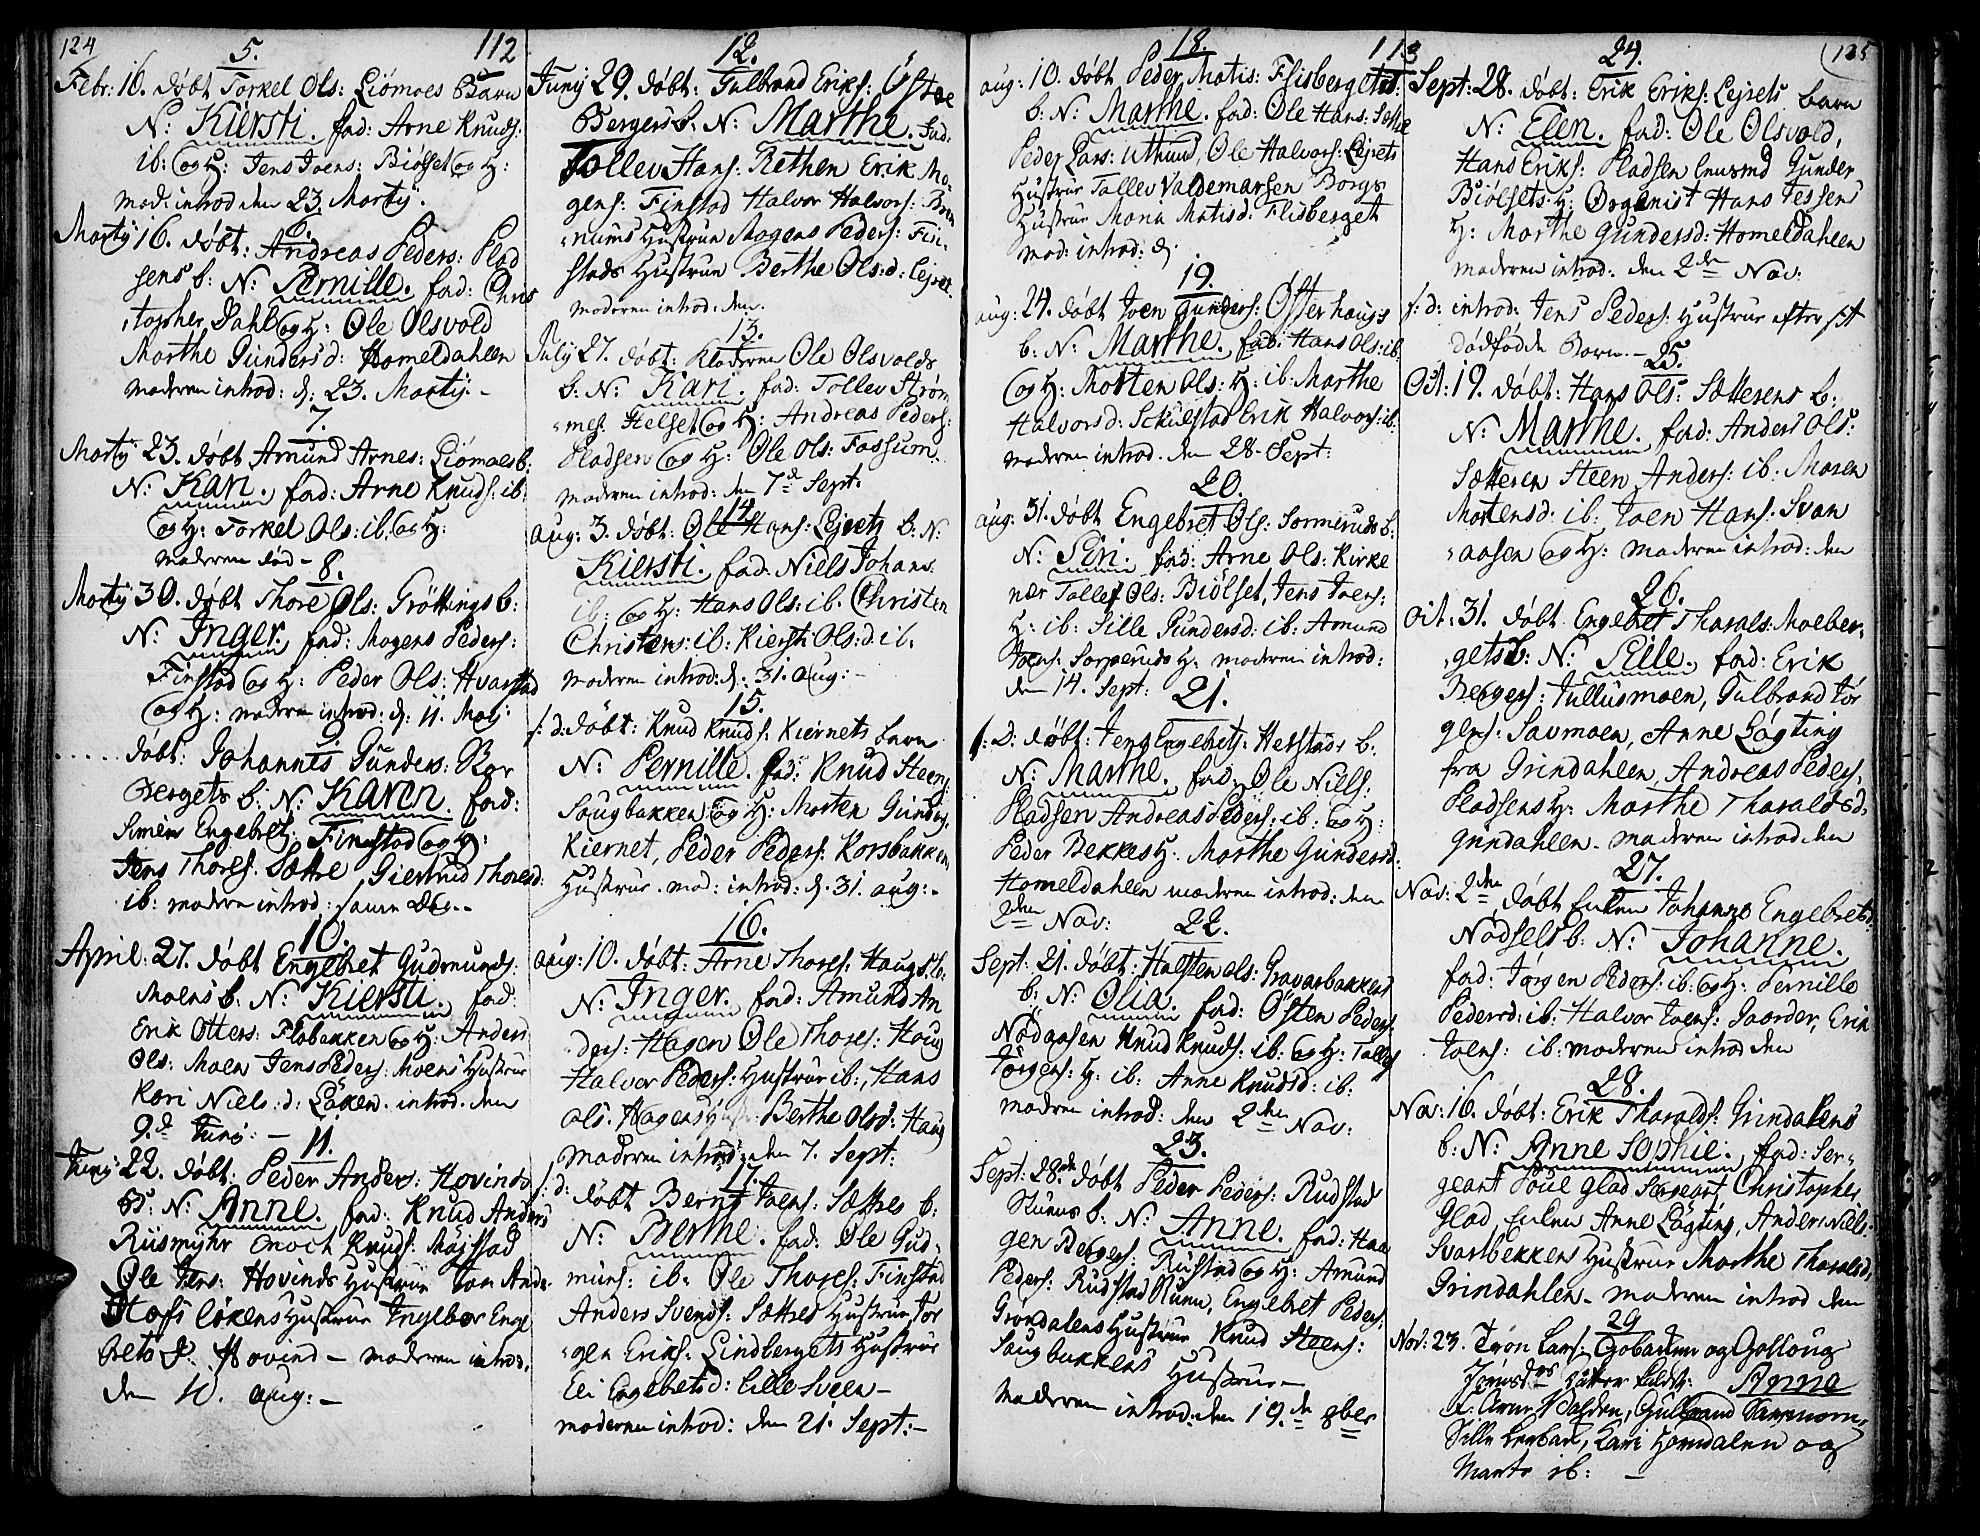 124
5.
112
Febr: 16. døbt Torkel Ols: Liømoes Barn
N: Kiersti. fad: Arne Knuds:
ib: og H: Jens Joens: Biølset og H:
mod: introd den 23. Martij.
6.
Martij 16. døbt: Andreas Peders: Plad
sens b: N: Pernille. fad: Chris
topher Dahl og H: Ole Olsvold
Marthe Gundersd: Homeldahlen
moderen introd: d: 23. Martij. -
7.
Martij 23. døbt Amund Arnes: Liømoes b:
N: Kari. fad: Arne Knuds: ib:
og H: Torkel Ols: ib: og H:
moderen død -
8.
Martij 30. døbt Thore Ols: Grøttings b:
N: Inger. fad: Mogens Peders:
Finstad og H: Peder Ols: Hvarstad
og H: modern introd: d: 11. Maij.
9
..... døbt: Johannes Gunders: Bor
bergets b: N: Karen. fad:
Simen Engebrets: Finstad og H:
Jens Thores: Sættre Giertrud Thoresd:
ib: modern introd: samme Dag. -
10.
April: 27. døbt Engebret Gudmunds:
Moens b: N: Kiersti. fad:
Erik Otters: Flobakken og H: Anders
Ols: Moen Jens Peders: Moens Hustrue
Kari Niels: d: Løken. introd. den
9.d Junj: -
11.
Junj: 22. døbt: Peder Anders: Hovinds
B: N: Anne. fad: Knud Anders
Riismyhr Enoch Knuds: Møystad
Ole Jens: Hovinds Hustrue Tore Ande:
Stofs løkens Hustrue Ingebor Enge
brets d: Hovind - moderen introd.
den 10. aug: -
12.
Junij 29. døbt: Gulbrand Eriks: Østre
Bergers b: N: Marthe. fad:
Tollev Hans: Rethen Erik Mo-
gens: Finstad Halvor Halvors: Born
nums Hustrue Mogens Peders: Fin-
stads Hustrue Berthe Ols: d: Lejret.
moderen introd: den.
13.
Julij 27. døbt: Klokeren Ole Olsvolds
b: N: Kari. fad: Tollev Strøm
mes: Helset og H: Andreas Peders:
Pladsen og H: Ole Ols: Fossum.
moderen introd: den 7.d Sept.
14.
aug: 3. døbt: Ole Hans: Lejrets b: N:
Kiersti. fad: Niels Johans
ib: og H: Hans Ols: ib. Christen
Christens: ib: Kiersti Ols: d: ib.
moderen introd: d: 31. aug: -
15.
s: d: døbt: Knud Knuds: Kiernets barn
N: Pernille. fad: Knud Steens
Saugbakken og H: Morten Gunders,
Kiernet, Peder Peders: Korsbakken
Hustrue. mod: introd: d: 31. aug: -
16.
aug: 10. døbt: Arne Thores: Haugs b:
N: Inger. fad: Amund An
ders: Hagen Ole Thores: Haug
Halvor Peders: Hustrue ib:, Hans
Ols: Hagens Hust: Berthe Olsd: Haug
moderen introd: den 7. Sept:
17.
s: d: døbt Bernt Joens: Sættres b:
N: Berthe. fad: Ole Gud-
muns: ib: Ole Thores: Finstad
Anders Svends: Sættres Hustrue Jør
gen Eriks: Lindbergets Hustrue
Eli Engebretsd: Lille Sveen -
moderen introd: den 21. Sept: -
18.
113
aug: 10. døbt Peder Matis: Flisbergets
b: N: Marthe. fad: Ole Hans: Sættre
Peder Lars: Uthuus, Ole Halvors: Lejrets
Hustrue Tollev Valdemarsen Borgs
Hustrue Mona Matisd: Flisberget
mod: introd: d:
19.
aug: 24. døbt Joen Gunders: Østerhaugs
b: N: Marthe. fad: Hans Ols: ib:
og H: Morten Ols: H: ib: Marthe
Halvorsd: Schulstad Erik Halvors: ib:
moderen introd. den 28. Sept:
20.
aug: 31. døbt Engebret Ols: Sormeruds b:
N: Siri. fad: Arne Ols: Kirke
nær Tollef Ols: Biølset, Jens Joens:
H: ib: Sille Gundersd: ib: Amund
Joens: Sorperuds H: moderen introd:
den 14. Sept:
21.
s: d: døbt: Jens Engebrets: Herstads b:
N: Marthe. fad: Ole Niels:
Pladsen Andreas Peders: ib: og H:
Peder Bekkes H: Marthe Gundersd:
Homeldahlen moderen introd: den
2den Nov:
22.
Sept: 21. døbt: Halsten Ols: Gravarbakkens
b: N: Olia. fad: Østen Peders:
Nødaasen Knud Knuds: ib: og H: Tollef
Jørgens: H: ib: Anne Knudsd: ib:
modren introd: den 2den Nov:
23.
Sept: 28.de døbt Peder Peders: Rudstad
Stuens b: N: Anne. fad: Haa
gen Bergers: Rustad og H: Amund
Peders: Rudstad Stuen, Engebret Peders:
Grøndalens Hustrue Knud Steens:
Saugbakkens Hustrue -
moderen introd: den 19.de 8ber
24.
125
Sept: 28. døbt: Erik Eriks: Lejrets barn
N: Elen. fad: Ole Olsvold,
Hans Eriks: Pladsen Amund Gunder
Biølsets H: Organist Hans Jessens
H: Marthe Gundersd: Homeldahlen
moderen introd: den 2de Nov:
s: d: introd: Jens Peders: Hustrue efter sit
dødfødde Barn. -
25.
Oct: 19. døbt: Hans Ols: Sætterens b:
N: Marthe. fad: Anders Ols:
Sætteren Steen Anders: ib: Maren
Mortensd: ib: Joen Hans: Svan
aasen og H: moderen introd: den
26.
Oct: 31. døbt Engebret Tharals: Moeber-
gets b: N: Sille. fad: Erik
Bergers: Jullusmoen, Gulbrand Jør
gens: Savmoen, Anne Løgting
fra Grindahlen, Andreas Peders,
Pladsens H: Marthe Tharaldsd,
Grindahlen. moderen introd. den
27.
Nov: 2den døbt Enken Johanne Engebretsd:
Nødsels b: N: Johanne.
fad: Jørgen Peders: ib: og H: Pernille
Pedersd: ib: Halvor Joens: Gaarder, Erik
Joens: ib: moderen introd den
28.
Nov: 16. døbt: Erik Tharalds: Grindalens
b: N: Anne Sophie. fad: Ser-
geant Poul Glad Sergeant Christopher
Glad, Enken Anne Løgting, Anders Niels:
Svartbekkens Hustrue Marthe Tharaldsd,
Grindahlen. moderen introd den
29
Nov: 23. Tron Lars: og Gollaug
Jørnsd: Anne
f: Gulbrand
Kari Horndalen og
Marte ib: -